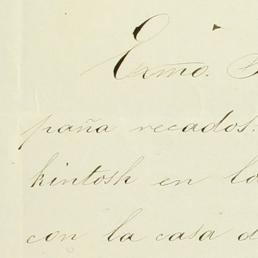 Exmo. S
paña recados.
kintosh en lo
con la casa d